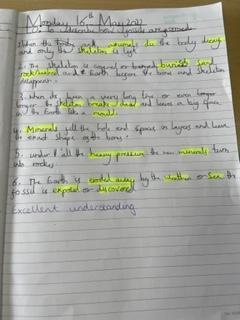 Monday 16th May 2022
L.O. to describe how fossils are formed.
1. When the animals die the body decays
and only the skeleton is left
2. The skeleton is covered or buried in sand
rock/mud and earth before the bone and skeleton
disappear.
3. When its been a very long time or even longer
longer the skeleton breaks down and leaves a big space
and the Earth like a mould.
4. Minerals fill the hole and spaces in layers and leave
the exact shape of the bones.
5. under all the heavy pressure the new minerals turn
into rocks.
6. The Earth is eroded away by the weather or Sea the
fossil is exposed or discovered
excellent understanding